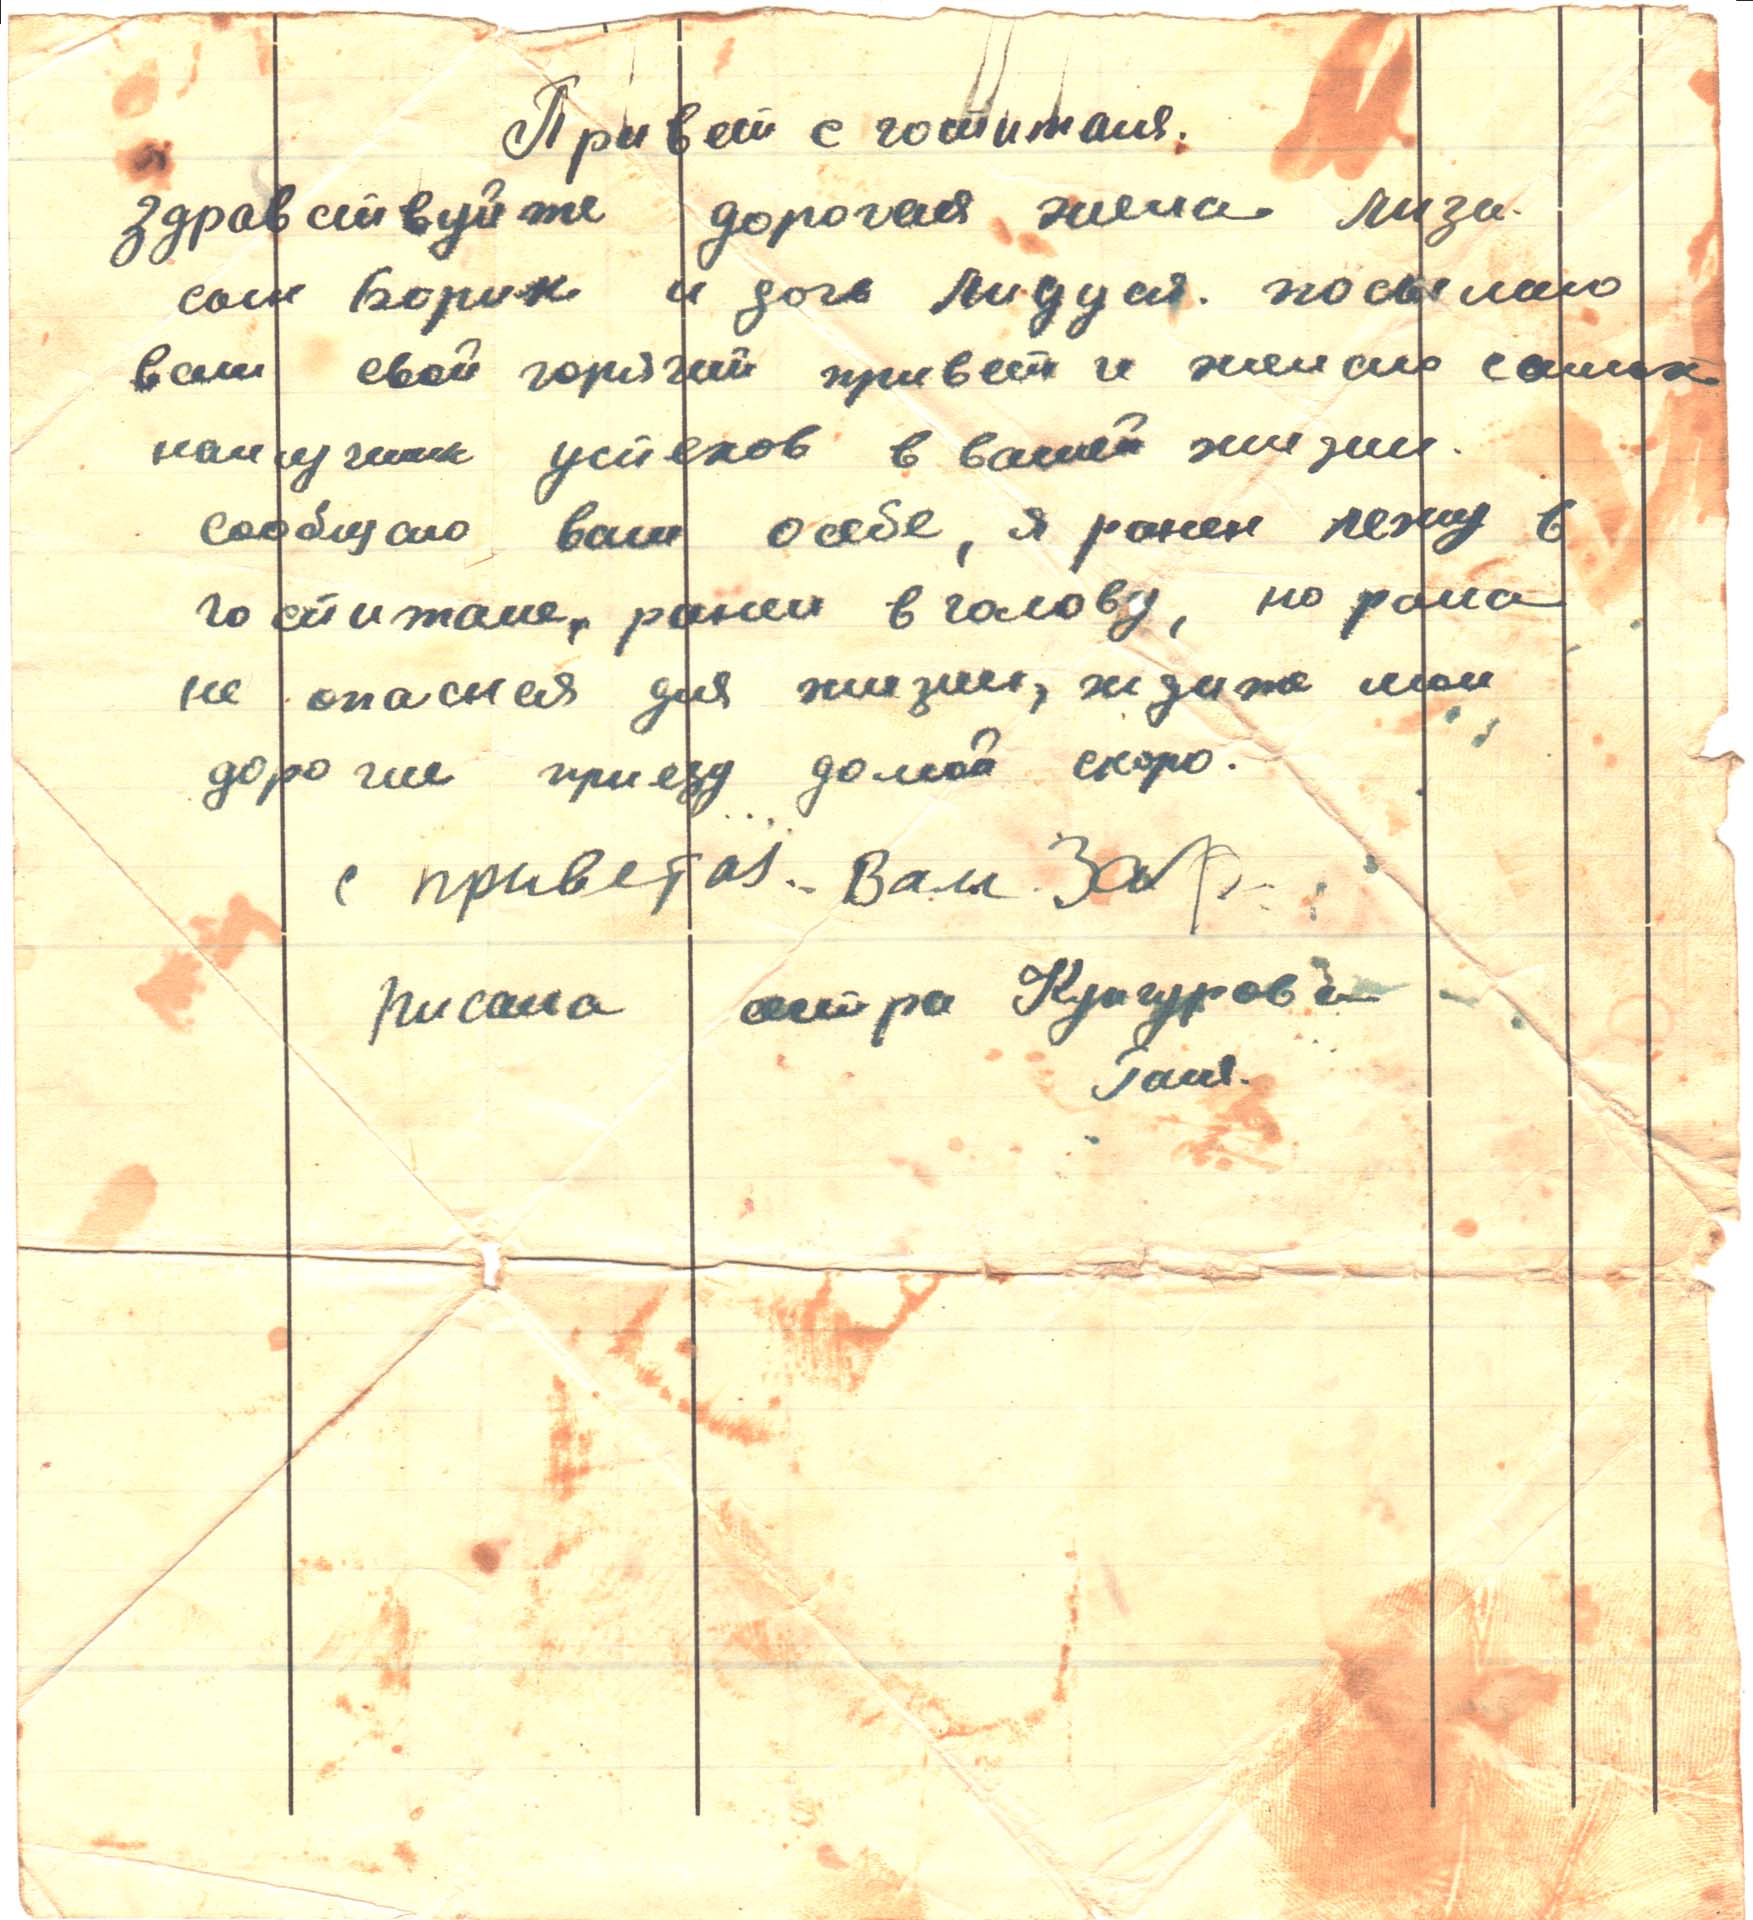 Привет с госпиталя.
Здравствуйте дорогая жена Лиза.
сын Борик и дочь Лидуся. посылаю
вам свой горячий привет и желаю самых
наилучших успехов в вашей жизни.
сообщаю вам осебе, я ранен лежу в
госпитале, ранен в голову, но рана
не опасная для жизни, ждите мои
дорогие приезд домой скоро.
с приветом. Вам
писала сестра Кунгурова
Галя.